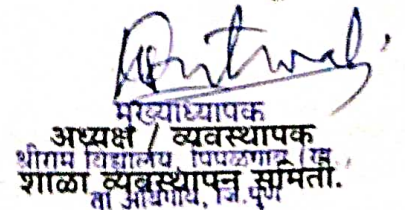 मुख्याध्यापक
अध्यक्ष / व्यवस्थापक
श्रीराम विद्यालय, पिंपळगाव
शाळा व्यवस्थापन समिती.
ता आंबेगाव, जि.पुणे